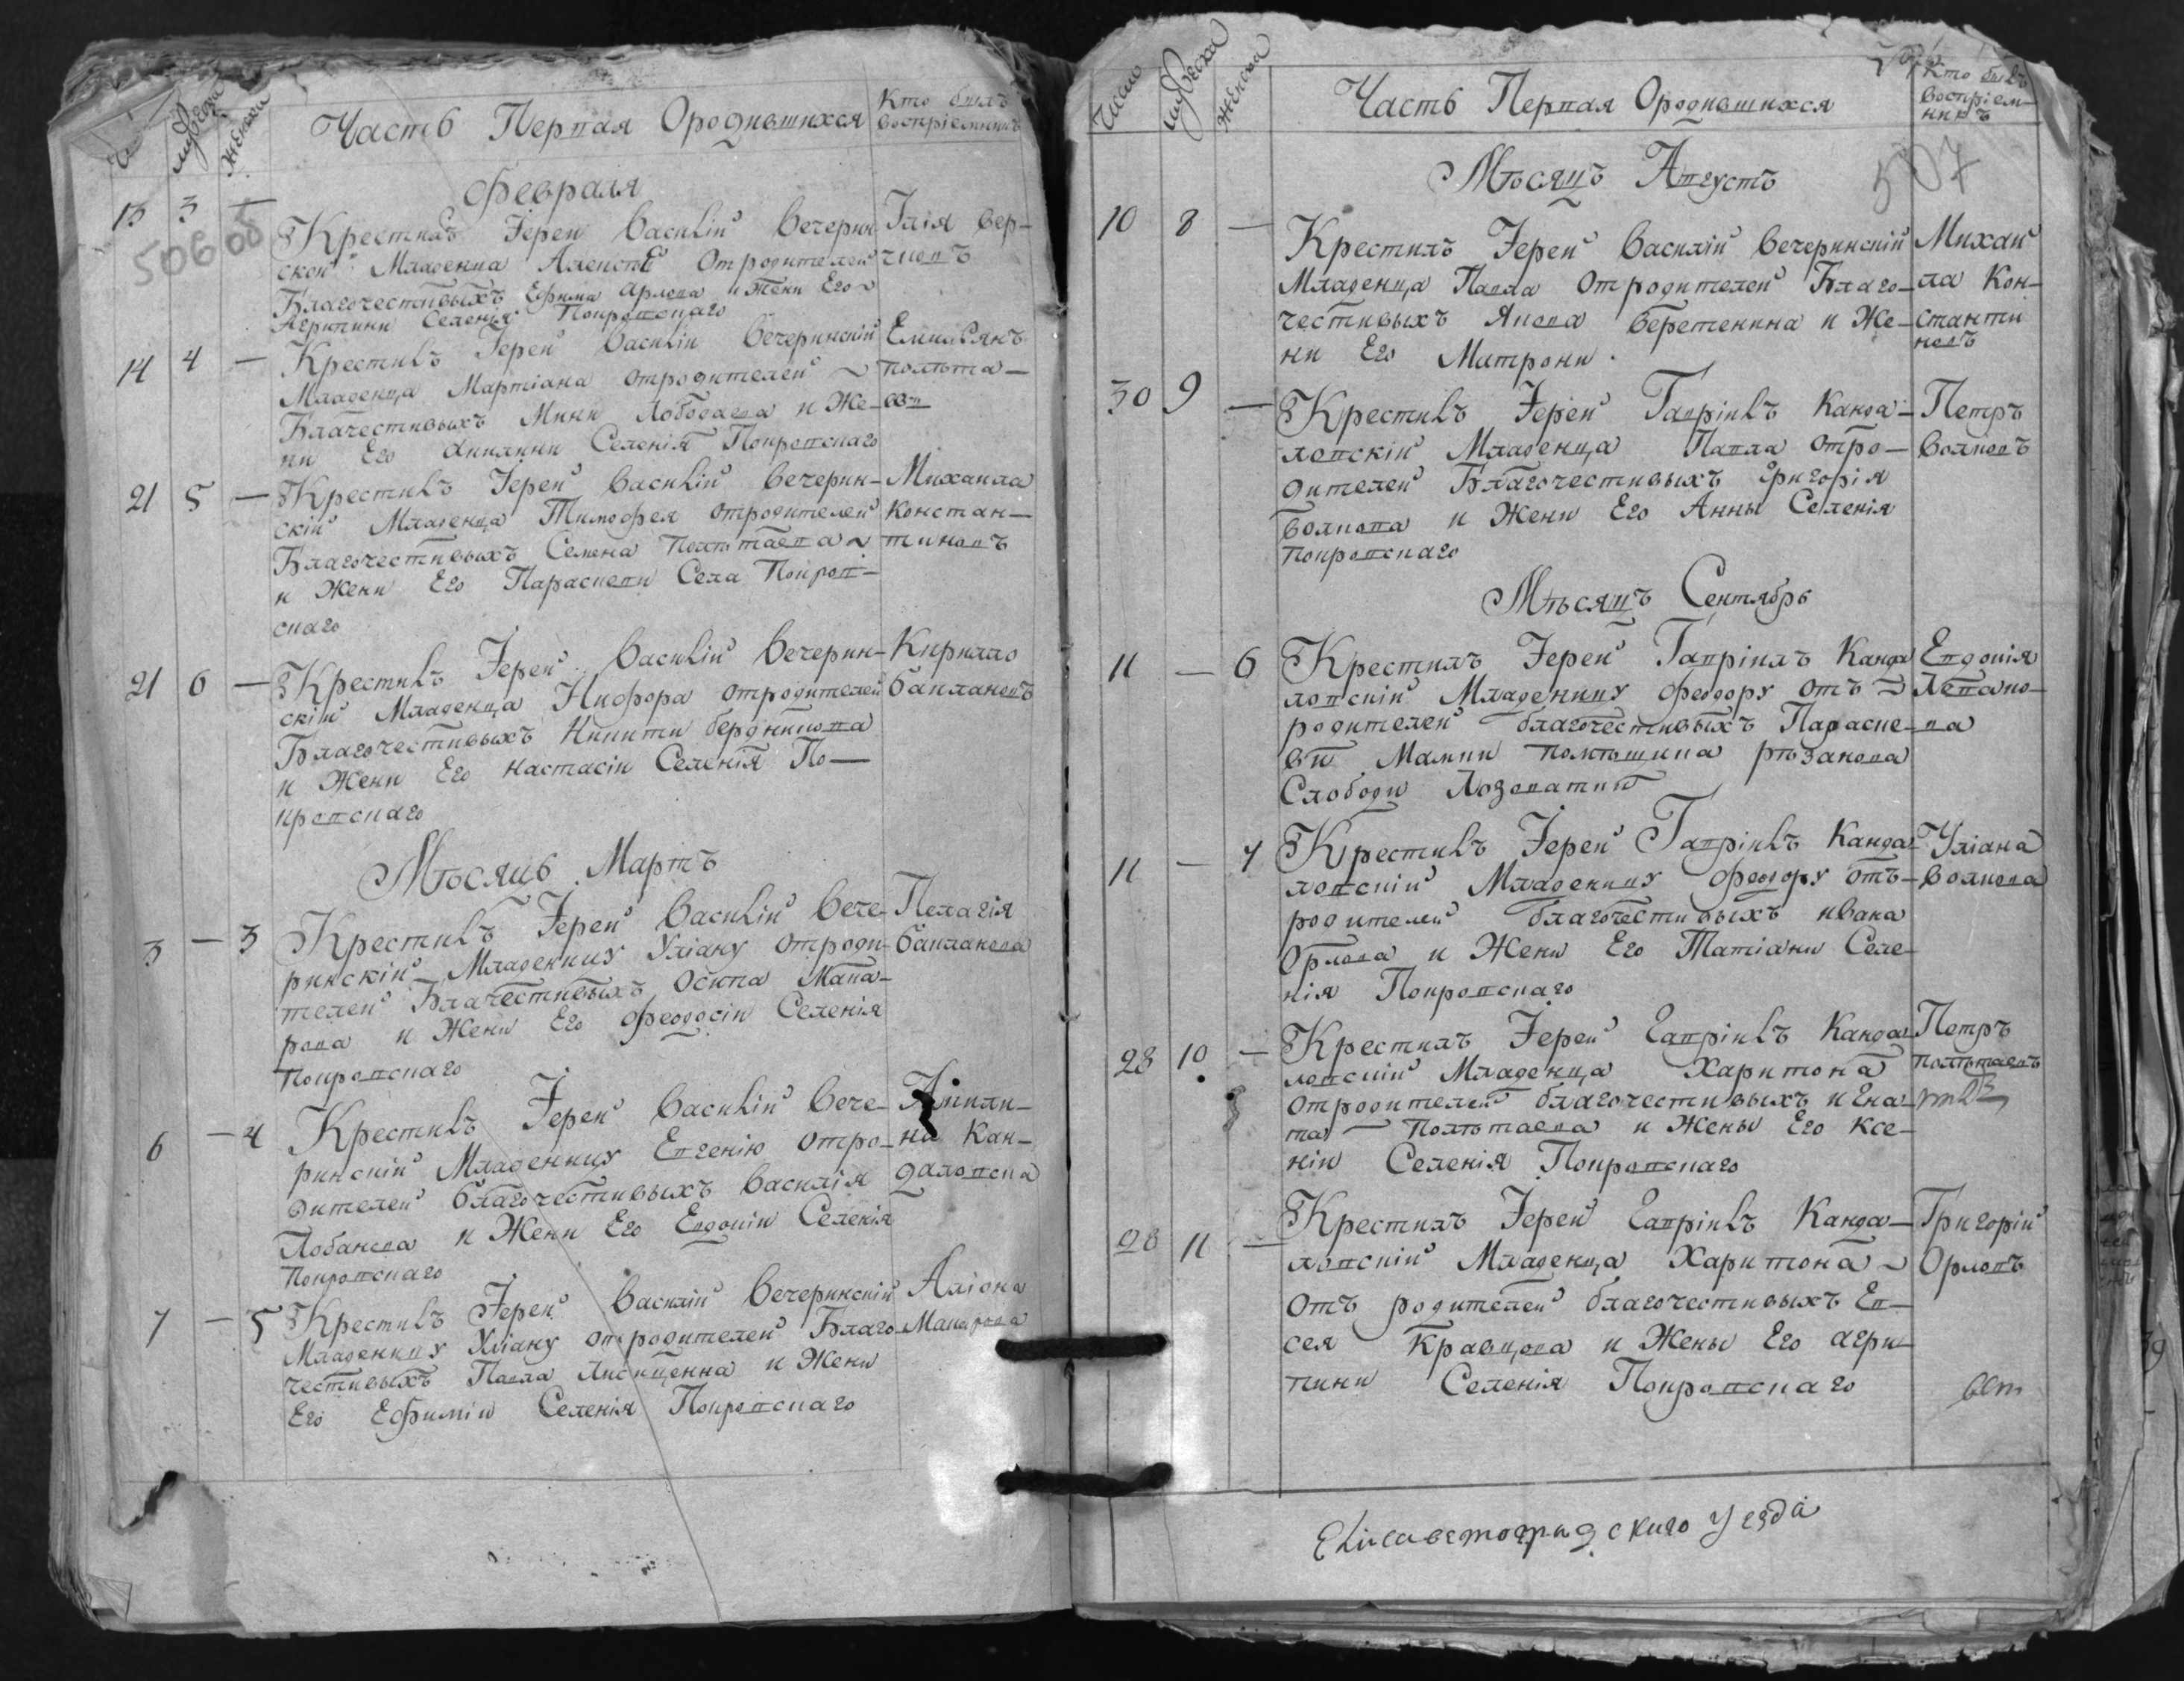 Число
мужеска
женска
Часть Первая Ородившихся
Кто былъ
Воспріемникъ
Февраля
13 3 —
506 об
Крестилъ Іерей Василій Вечерин
ской Младенца Алексѣя Отродителей
Благочестивыхъ Ефима Орлова и Жени Его
Агрипини Селенія Покровскаго
Ілія Вер-
14 4 —
Крестилъ Іерей Василій Вечеринскій
Младенца Мартіана отродителей
Благачестивыхъ Мини Лободаева и Же-
ни Его Акилини Селенія Покровскаго
Емильянъ
Полѣта-
21 5 —
Крестилъ Іерей Василій Вечерин-
скій Младенца Тимофея отродителей
Благочестивыхъ Семена Полѣтаева
и Жени Его Парасковеи Села Покров-
скаго
Михаила
Констан-
тиновъ
21 6 —
Крестилъ Іерей Василій Вечерин-
скій Младенца Никфора отродителей
Благочестивыхъ Никити Бердникова
и Жени Его Настасіи Селенія По-
кровскаго
Кирилло
Баклановъ
Мѣсяць Мартъ
3 — 3
Крестилъ Іерей Василій Вече-
ринскій Младеницу Уліану Отроди-
телей Благачестивыхъ Осипа Мака-
рова и Жени Его Феодосіи Селенія
Покровскаго
Пелагія
Бакланова
6 — 4
Крестилъ Іерей Василій Вече-
ринскій Младеницу Евгенію Отро-
дителей благочестивыхъ Василія
Лобанова и Жени Его Евдокіи Селенія
Покровскаго
Акили-
на Кан-
даловска
7 — 5
Крестилъ Іерей Василій Вечеринскій
Младеницу Уліану отродителей Благо
честивыхъ Павла Лисиценна и Жени
Его Ефиміи Селенія Покровскаго
Аліона
Макарова
Число
мужеска
женска
Часть Первая Ородившихся
Кто былъ
Воспріем-
никъ
507
Мѣсяцъ Августъ
10 8 —
Крестилъ Іерей Василій Вечеринскій
Младенца Павла Отродителей Благо-
честивыхъ Якова Беретенина и Же-
ни Его Матрони.
Михаи
ла Кон-
станти
новъ
30 9 —
Крестилъ Іерей Гавріилъ Канда-
ловскій Младенца Павла Отро-
дителей Благочестивыхъ Григорія
Волкова и Жени Его Анны Селенія
Покровскаго
Петръ
Волковъ
Мѣсяцъ Сентябрь
11 — 6
Крестилъ Іерей Гавріилъ Канда
ловскій Младеницу Феодору отъ
родителей благочестивыхъ Параске-
вы Мамки помѣщика рѣзанова
Слободи Лозоватки
Евдокія
11 — 7
Крестилъ Іерей Гавріилъ Канда-
ловскій Младеницу Феодору отъ-
родителей благочестивыхъ ивана
Орлова и Жени Его Татіани Селе-
нія Покровскаго
Уліана
Волкова
28 10 —
Крестилъ Іерей Гавріилъ Канда
ловскій Младенца Харитона
Отродителей благочестивыхъ игна-
та Полѣтаева и Жены Его Ксе-
ніи Селенія Покровскаго
Петръ
Полѣтаевъ
28 11 —
Крестилъ Іерей Гавріилъ Канда-
ловскій Младенца Харитона
Отъ родителей благочестивыхъ Ев-
сея Кравцова и Жены Его агри-
пини Селенія Покровскаго
Григорій
Орловъ
Елисаветоградскаго уезда